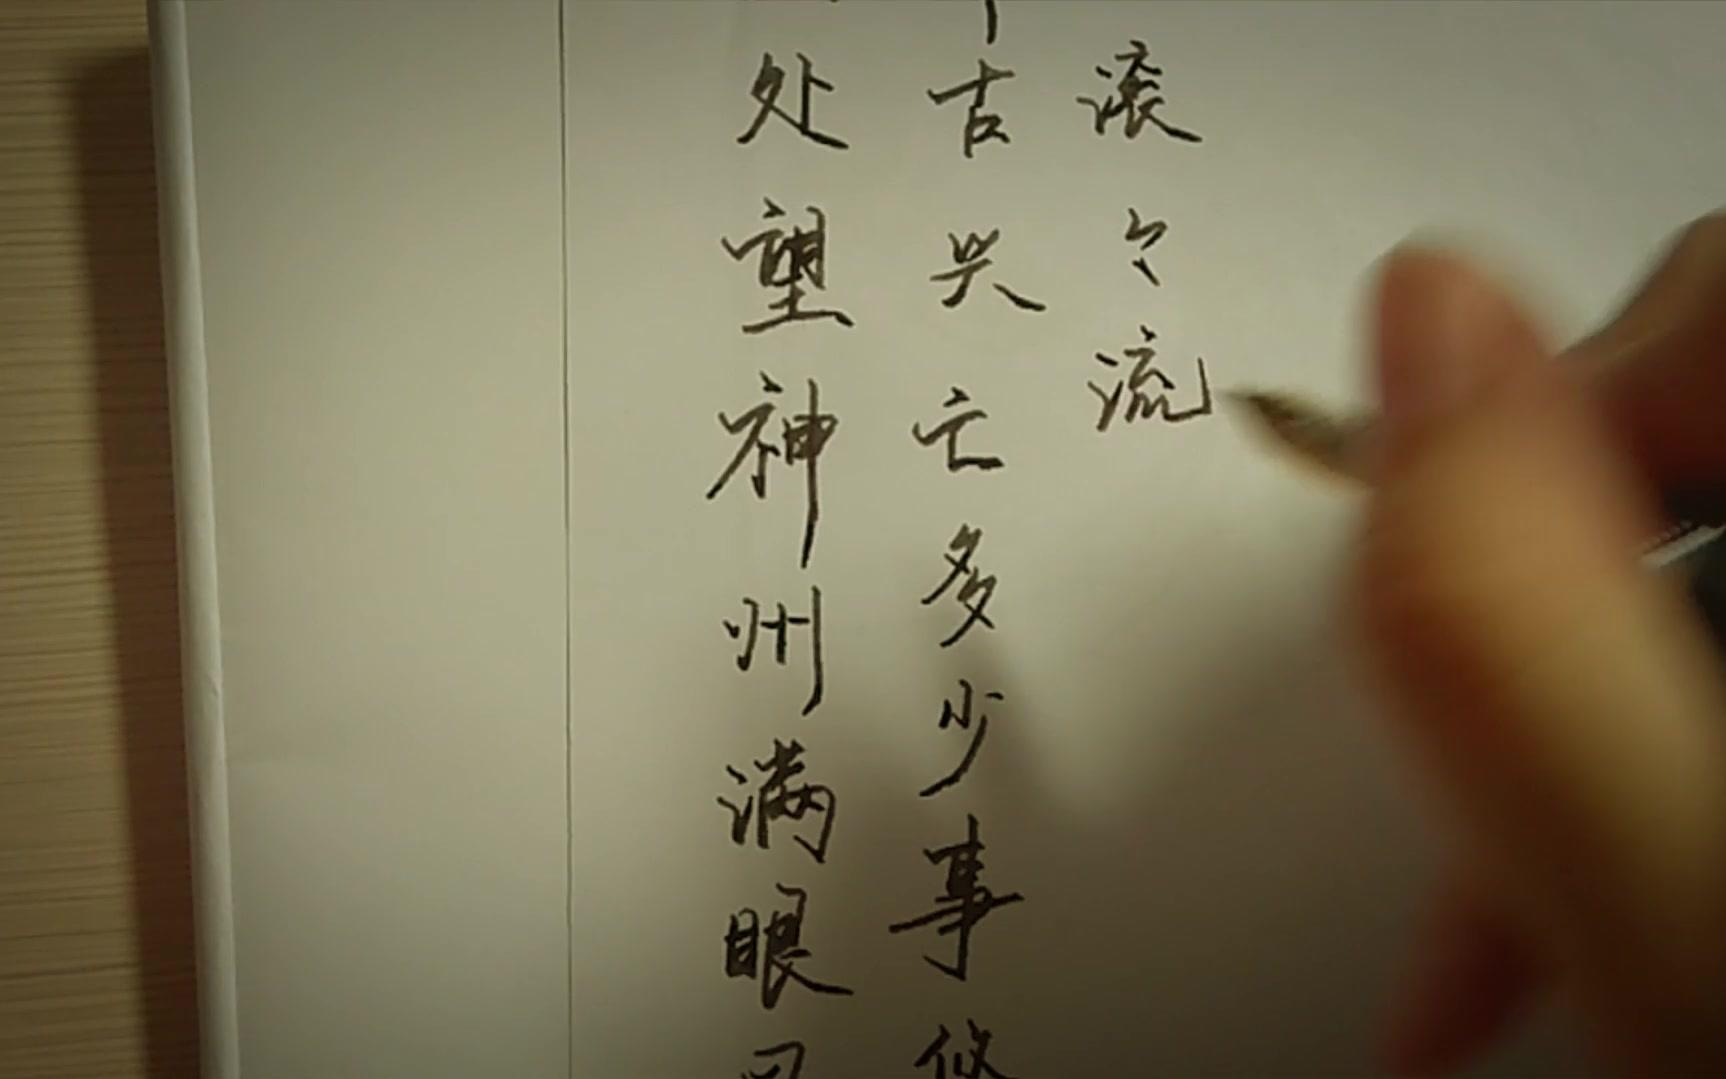 处望神州满眼
古兴亡多少事悠
滚々流